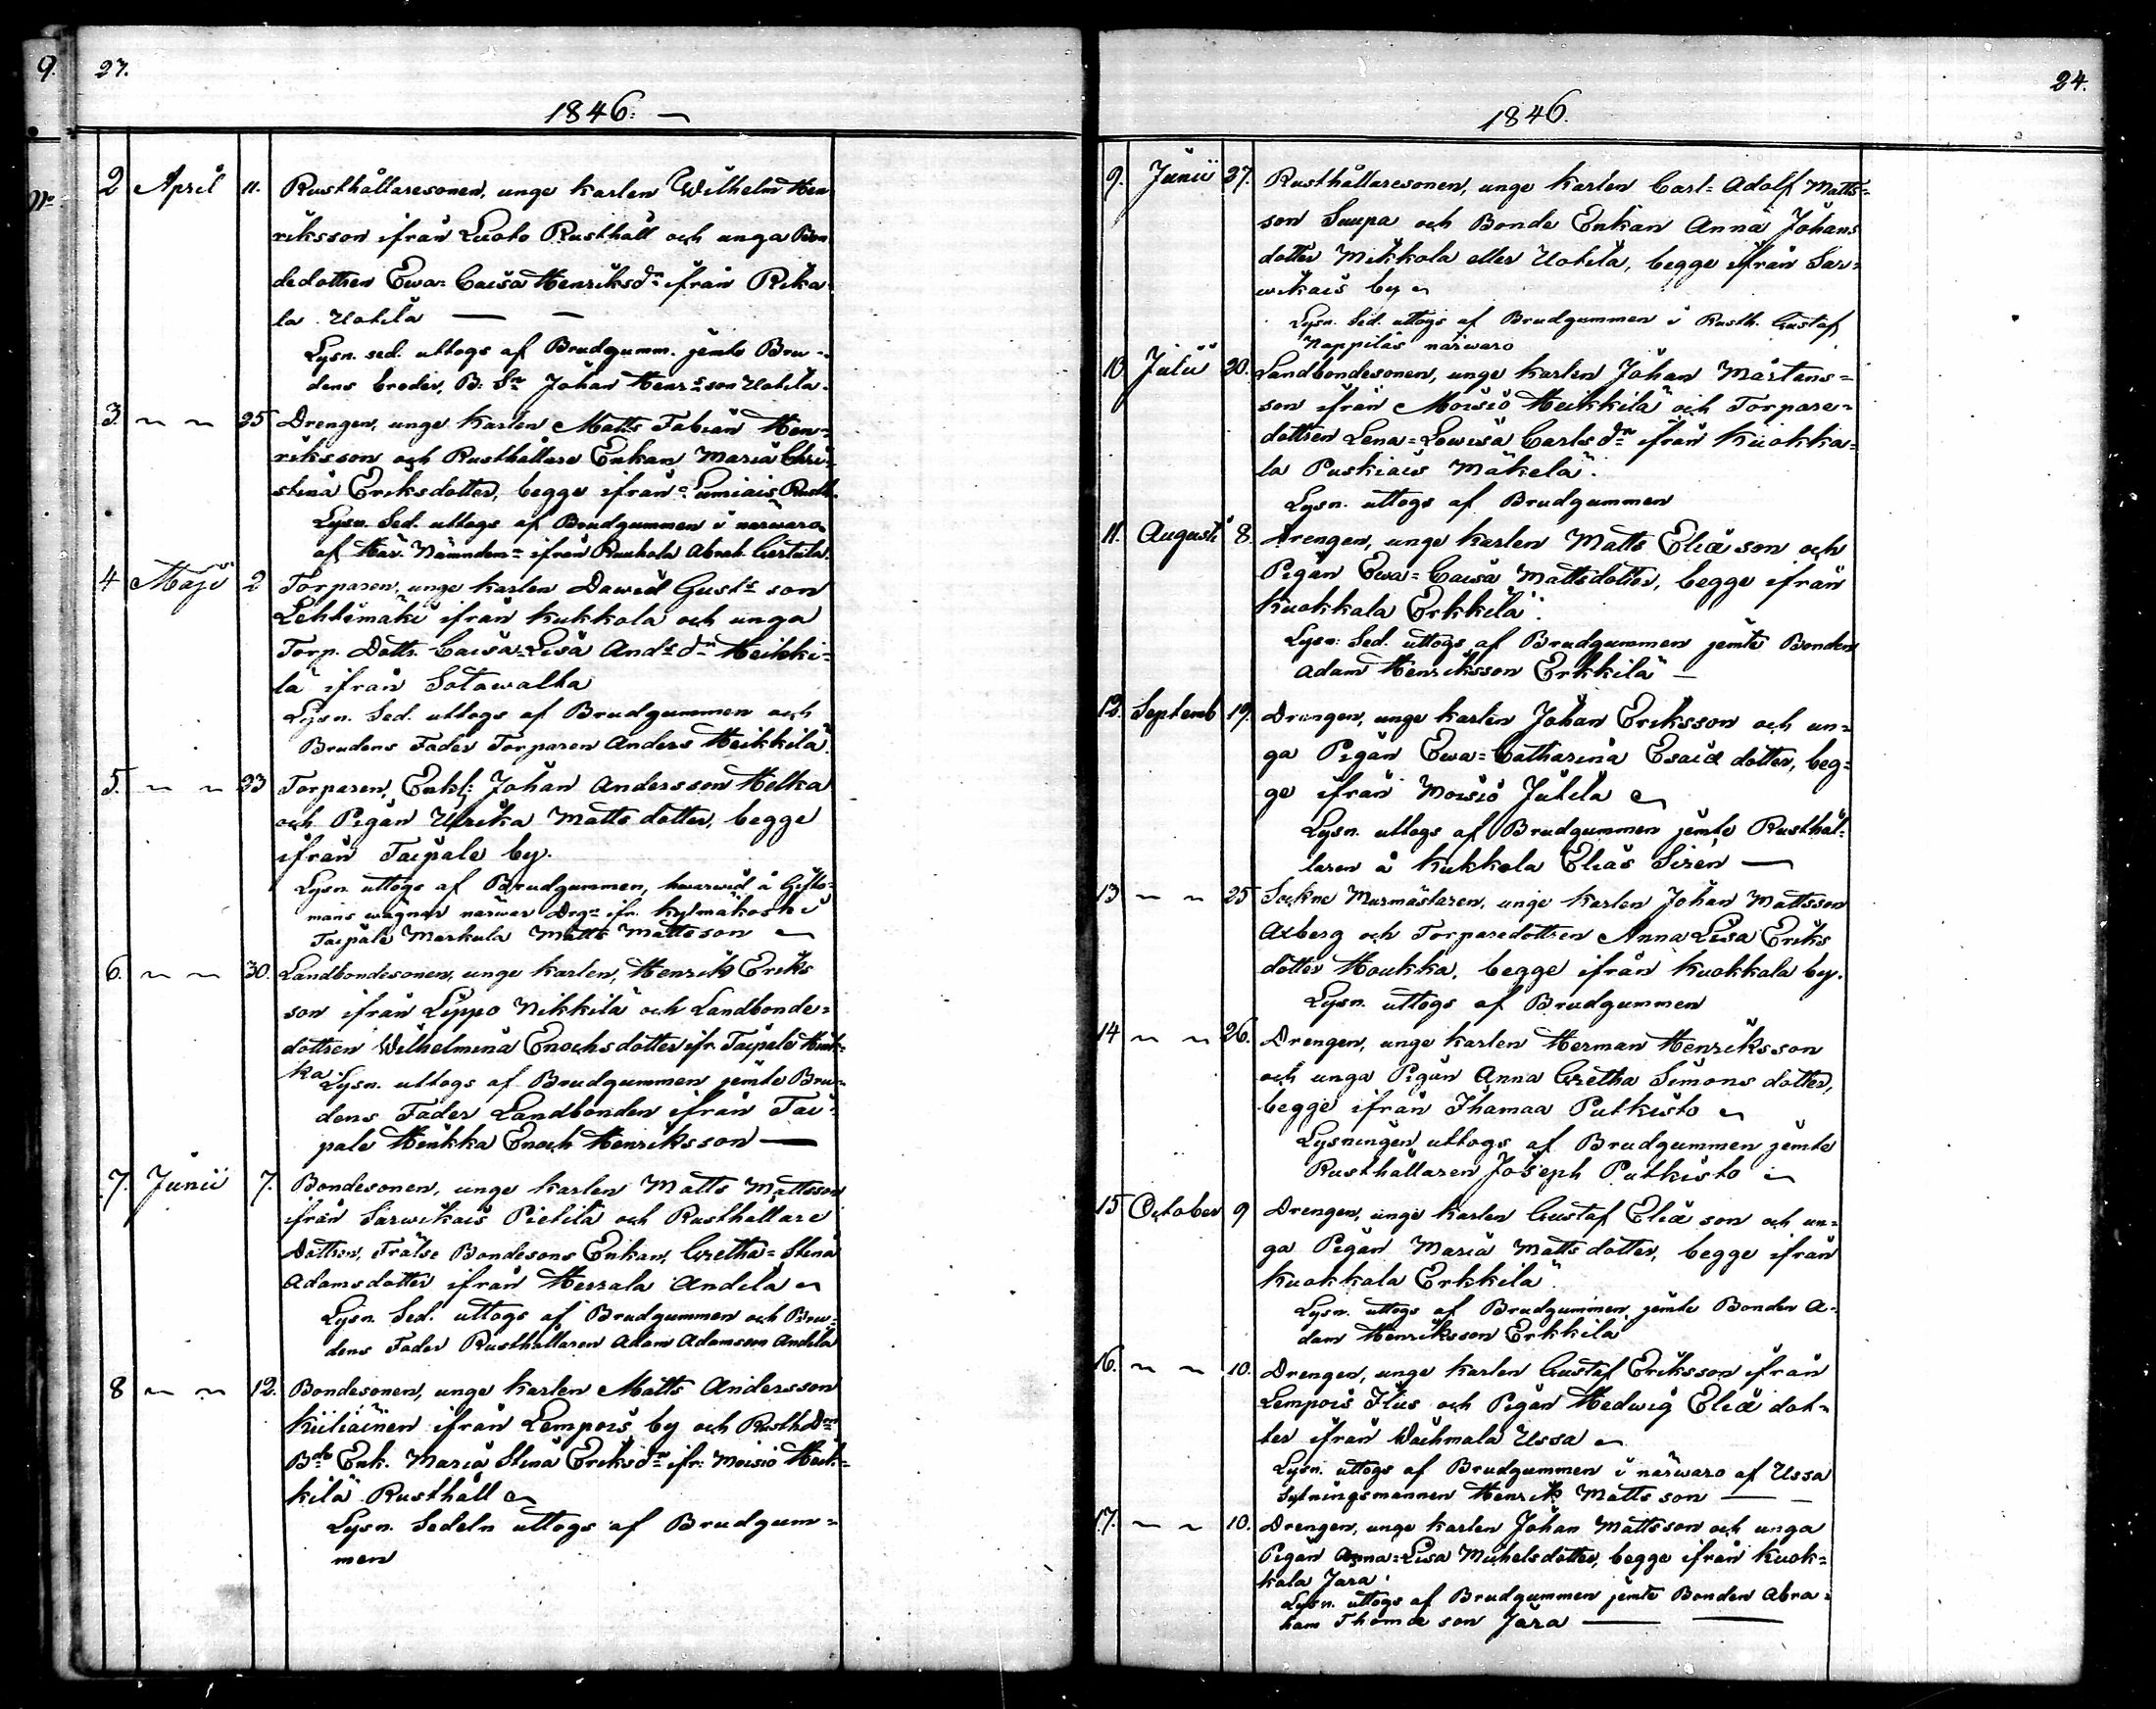 9.
No
27.
1846.
2 April 11. Rusthållaresonen, unge karlen Wilhelm Hen
riksson ifrån Luoto Rusthåll och unga Bon
dedottren Ewa=Caisa Henriksdr ifrån Rika-
la Uotila
Lysn. sed. uttogs af Brudgumm. jemte Bru-
dens broder, B: Sn Johan Henrsson Uotila.
3. ~ ~ 25 Drengen, unge karlen Matts Fabian Hen-
riksson och Rusthållare Enkan Maria Chri-
stina Eriksdotter, begge ifrån Lumiais Rusth.
Lysn. Sed. uttogs af Brudgummen i närwaro
af Här. Nämndem ifrån Ruuhola Abrah.
4 Maji 2 Torparen, unge karlen Dawid Gusts son
Lehtimäki ifrån Kukkola och unga
Torp. Dottr. Caisa=Lisa Ands dr Heikki-
lä ifrån Sotawalta
Lysn. Sed. uttogs af Brudgummen och
Brudens Fader Torparen Anders Heikkilä.
5. ~ ~ 23 Torparen, Enkl: Johan Andersson Helka
och Pigan Ulrika Matts dotter, begge
ifrån Taipale by.
Lysn. uttogs af Brudgummen, hwarwid å Gifto-
mans wägnar närwar Drg ifr. Kylmäkoski
Taipale Markula Matts Mattsson
6. ~ ~ 30. Landbondesonen, unge karlen, Henrik Eriks
son ifrån Lippo Nikkilä och Landbonde=
dottren Wilhelmina Enochsdotter ifr. Taipale Hink-
ka.
Lysn. uttogs af Brudgummen jemte Bru-
dens Fader Landbonden ifrån Tai-
pale Hinkka Enoch Henriksson
7. Junii 7. Bondesonen, unge karlen Matts Mattsson
ifrån Sarwikais Pietilä och Rusthållare
Dottren, Frälse Bondesons Enkan, Gretha=Stina
Adamsdotter ifrån Herrala Andila
Lysn. Sed. uttogs af Brudgummen och Bru-
dens Fader Rusthållaren Adam Adamsson Andila
8 ~ ~ 12. Bondesonen, unge karlen Matts Andersson
Kiiliäinen ifrån Lempois by och Rusth Drn
Enk. Maria Stina Eriksdr ifr: Moisio Heik-
kilä Rusthåll
Lysn. Sedeln uttogs af Brudgum=
men
24.
1846.
9. Junii 27. Rusthållaresonen, unge karlen Carl=Adolf Matts=
son Suupa och Bonde Enkan Anna Johans
dotter Mikkola eller Uotila, begge ifrån Sar-
wikais by
Lysn. Sed. uttogs af Brudgummen i Rusth. Gustaf
Nappilas närwaro
10. Julii 20. Landbondesonen, unge karlen Johan Mårtens=
son ifrån Moisio Heikkilä och Torpare-
dottren Lena=Lowisa Carls dr ifrån Kuokka-
la Puskiais Mäkelä.
Lysn. uttogs af Brudgummen
11. Augusti 8. Drengen, unge karlen Matts Eliæ son och
Pigan Ewa=Caisa Mattsdotter, begge ifrån
Kuokkala Erkkilä.
Lysn: Sed. uttogs af Brudgummen jemte Bonden
Adam Henriksson Erkkilä
12. Septemb 19. Drengen, unge karlen Johan Eriksson och un-
ga Pigan Ewa=Catharina Esaiæ dotter, beg-
ge ifrån Moisio Jutila
Lysn. uttogs af Brudgummen jemte Rusthål-
laren å Kukkola Elias Siren
13 ~ ~ 25 Sockne Murmästaren, unge karlen Johan Mattsson
Axberg och Torparedottren Anna Lisa Eriks
dotter Houkka, begge ifrån Kuokkala by.
Lysn. uttogs af Brudgummen
14 ~ ~ 26. Drengen, unge karlen Herman Henriksson
och unga Pigan Anna Gretha Simons dotter,
begge ifrån Ihamaa Putkisto
Lysningen uttogs af Brudgummen jemte
Rusthållaren Joseph Putkisto
15 October 9 Drengen, unge karlen Gustaf Eliæ son och un-
ga Pigan Maria Matts dotter, begge ifrån
Kuokkala Erkkilä.
Lysn. uttogs af Brudgummen, jemte Bonden A-
dam Henriksson Erkkilä
16. ~ ~ 10. Drengen, unge karlen Gustaf Eriksson ifrån
Lempois Ilus och Pigan Hedwig Eliæ dot-
ter ifrån Waihmala Ussa
Lysn. uttogs af Brudgummen i närwaro af Ussa
Sytningsmannen Henrik Matts son
17. ~ ~ 10. Drengen, unge karlen Johan Mattsson och unga
Pigan Anna=Lisa Michelsdotter, begge ifrån Kuok=
kala Jara.
Lysn. uttogs af Brudgummen jemte Bonden Abra-
ham Thomæ son Jara